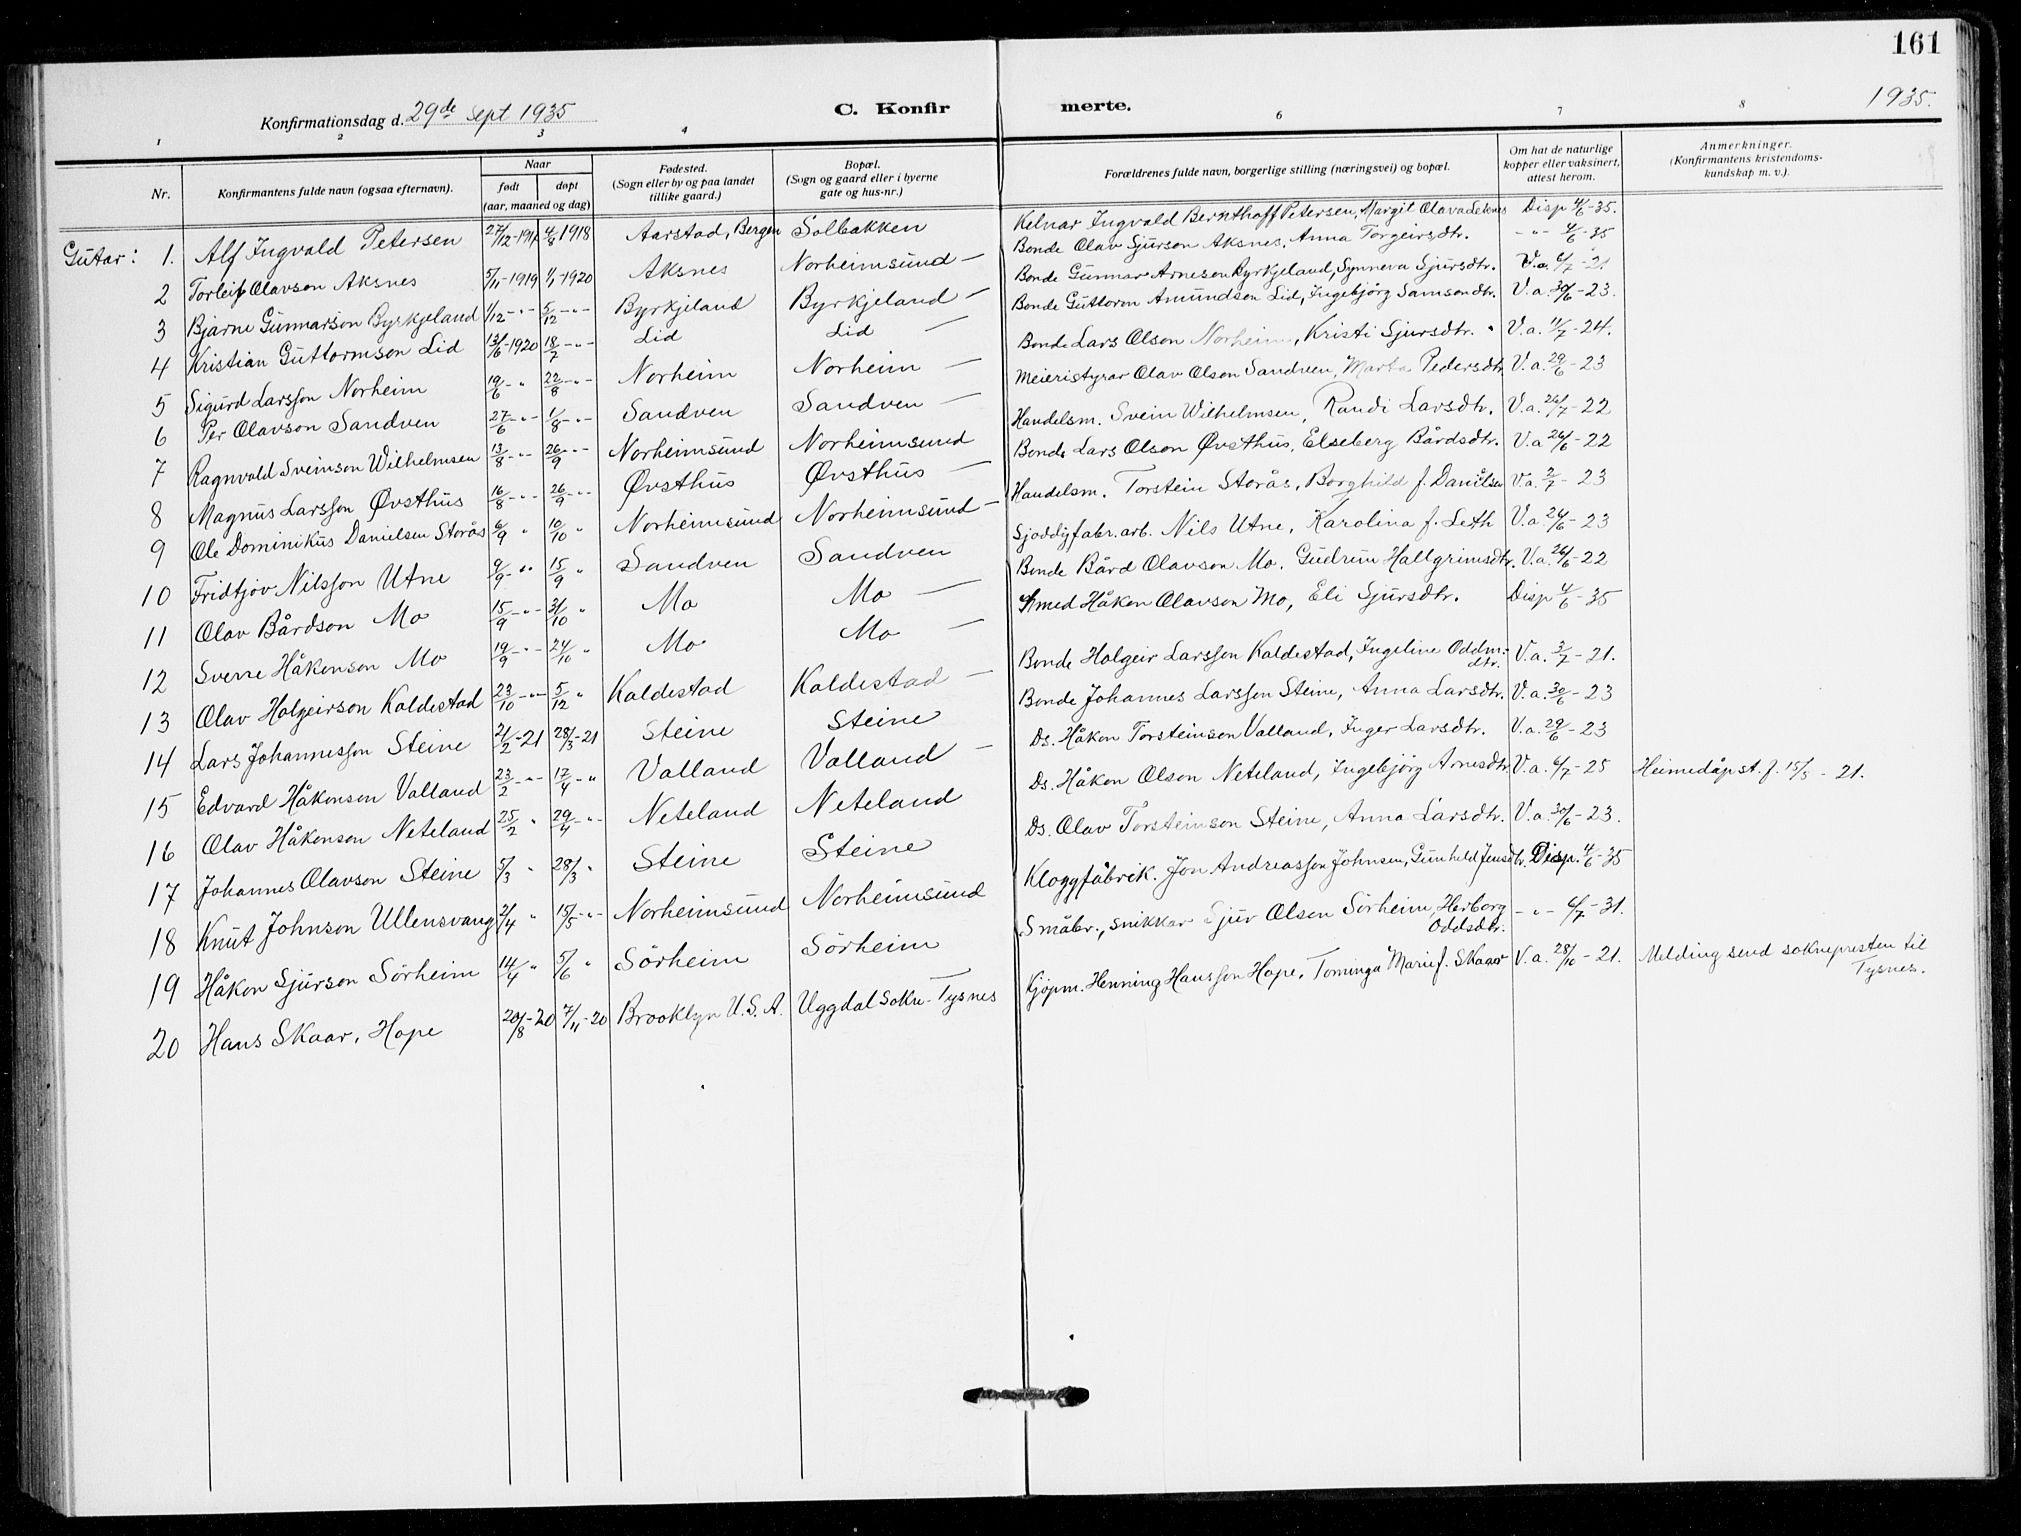 161
Konfirmationsdag d. 29de sept 1935
C. Konfir merte.
1935.
1 2 3 4 6 7 8
Nr.
Konfirmantens fulde navn (ogsaa efternavn).
Naar
født døpt
(aar, maaned og dag)
Fødested.
(Sogn eller by og paa landet
tillike gaard.)
Bopæl.
(Sogn og gaard eller i byerne
gate og hus-nr.)
Forældrenes fulde navn, borgerlige stilling (næringsvei) og bopæl.
Om hat de naturlige
kopper eller vaksinert,
attest herom.
Anmerkninger.
(Konfirmantens kristendoms-
kundskap m. v.).
Gutar: 1. Alf Ingvald Petersen 27/12-1917 4/8 1918 Aarstad, Bergen Solbakken Kelnar Ingvald Bernthoff Petersen, Margit Olava Disp 4/6-35.
2 Torleif Olavson Aksnes 5/11-1919 1/1-1920 Aksnes Norheimsund — Bonde Olav Sjurson Aksnes, Anna Torgeirsdtr. -"- 4/6-35
3 Bjarne Gunnarson Byrkjeland 1/12 -"- 5/12 -"- Byrkjeland Byrkjeland — Bonde Gunnar Arneson Byrkjeland, Synneva Sjursdtr. V.a. 6/7-21
4 Kristian Guttormson Lid 13/6-1920 18/7 -"- Lid Lid — Bonde Guttorm Amundson Lid, Ingebjörg Samsondtr. V.a. 30/6-23.
5 Sigurd Larsson Norheim 19/6 -" 22/8 -"- Norheim Norheim — Bonde Lars Olson Norheim, Kristi Sjursdtr. V.a. 11/7-24.
6 Per Olavson Sandven 27/6 -"- 1/8 -"- Sandven Sandven — Meieristyrar Olav Olson Sandven, Marta Pedersdtr. V.a. 29/6-23
7 Ragnvald Sveinson Wilhelmsen 13/8 -"- 26/9 -"- Norheimsund Norheimsund Handelsm. Svein Wilhelmsen, Randi Larsdtr. V.a. 26/7-22
8 Magnus Larsson Øvsthus 16/8 -"- 26/9 -"- Øvsthus Øvsthus — Bonde Lars Olson Øvsthus, Elseberg Bårdsdtr. V.a. 26/6-22
9 Ole Dominikus Danielsen Storås 6/9 " 10/10 " Norheimsund Norheimsund — Handelsm. Torstein Storås, Borghild f. Danielsen V.a. 2/7-23
10 Fridtjov Nilsson Utne 9/9 -" 15/9 " Sandven Sandven Sjoddyfabr.arb. Nils Utne, Karolina f. Leth V.a. 26/6-23
11 Olav Bårdson Mo 15/9 -"- 31/10 " Mo Mo — Bonde Bård Olavson Mo, Gudrun Hallgrimsdtr. V.a. 26/6-22
12 Sverre Håkonson Mo 19/9 -"- 24/10 " Mo Mo — Smed Håkon Olavson Mo, Eli Sjursdtr. Disp 4/6-35
13 Olav Holgeirson Kaldestad 23/10 -"- 5/12 " Kaldestad Kaldestad — Bonde Holgeir Larsson Kaldestad, Ingeline Oddm.-
dtr. V.a. 3/7-21.
14 Lars Johannesson Steine 21/2-21 28/3-21 Steine Steine Bonde Johannes Larsson Steine, Anna Larsdtr. V.a. 30/6-23
15 Edvard Håkonson Valland 23/2 -"- 17/4 -" Valland Valland — Ds. Håkon Torsteinson Valland, Inger Larsdtr. V.a. 29/6-23
16 Olav Håkonson Neteland 25/2 " 29/4 -"- Neteland Neteland Ds. Håkon Olson Neteland, Ingebjörg Arnesdtr. V.a. 6/7-25 Heimedåp st. f. 15/5-21.
17 Johannes Olavson Steine 5/3 " 28/3 " Steine Steine Ds. Olav Torsteinson Steine, Anna Larsdtr. V.a. 30/6-23.
18 Knut Johnson Ullensvang 2/4 " 15/5 -"- Norheimsund Norheimsund Kloggfabrik. Jon Andreasson Johnsen, Gunheld Jensdtr. Disp. 4/6-35
19 Håkon Sjurson Sörheim 14/4 " 5/6 " Sörheim Sörheim Småbr., snikkar Sjur Olson Sörheim, Herborg
Oddsdtr. -"- 6/7-31.
20 Hans Skaar, Hope 20/8-20 7/11-20 Brooklyn U.S.A. Uggdal Sokn-Tysnes Kjöpm. Henning Hansson Hope, Tominga Marie f. Skaar V.a. 28/10-21. Melding send soknepresten til
Tysnes.